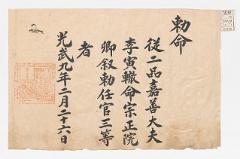 勅命
從二品嘉善大夫
李寅轍命宗正院
卿叙勅任官三等
者
光武九年二月二十六日